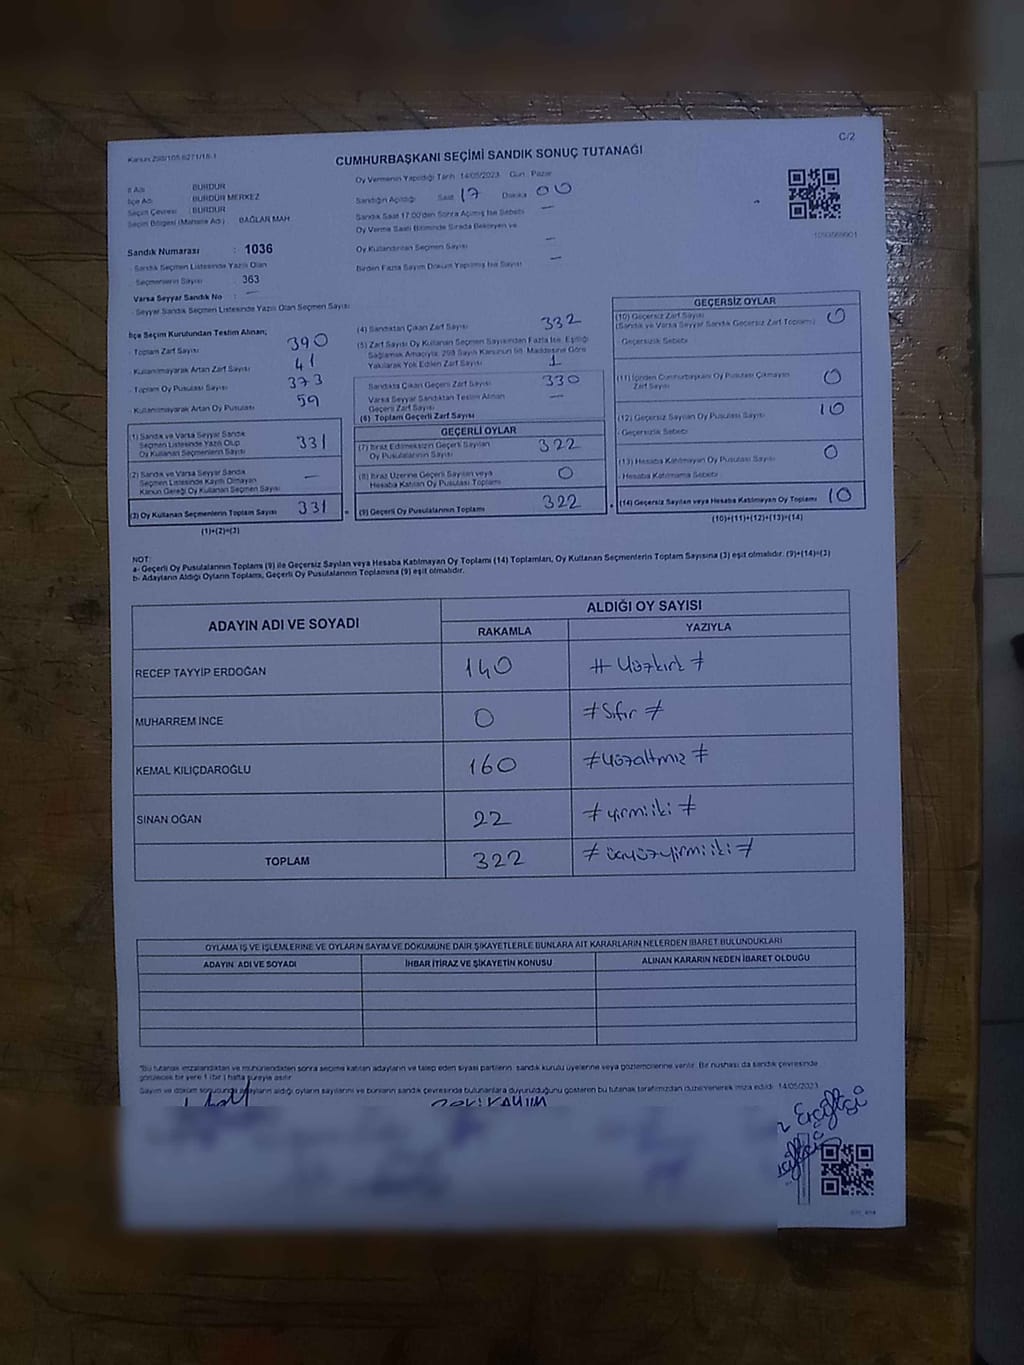 Kanun 298/105 6271/16-1
C/2
CUMHURBAŞKANI SEÇİMİ SANDIK SONUÇ TUTANAĞI
İl Adı : BURDUR
İlçe Adı : BURDUR MERKEZ
Seçim Çevresi : BURDUR
Seçim Bölgesi (Mahalle Adı) : BAĞLAR MAH.
Sandık Numarası : 1036
Sandık Seçmen Listesinde Yazılı Olan
Seçmenlerin Sayısı : 363
Varsa Seyyar Sandık No : —
Seyyar Sandık Seçmen Listesinde Yazılı Olan Seçmen Sayısı
Oy Vermenin Yapıldığı Tarih : 14/05/2023 Gün : Pazar
Sandığın Açıldığı Saat 17 Dakika 00
Sandık Saat 17.00'den Sonra Açılmış İse Sebebi —
Oy Verme Saati Bitiminde Sırada Bekleyen ve
Oy Kullandırılan Seçmen Sayısı —
Birden Fazla Sayım Döküm Yapılmış İse Sayısı —
İlçe Seçim Kurulundan Teslim Alınan;
- Toplam Zarf Sayısı 390
- Kullanılmayarak Artan Zarf Sayısı 41
- Toplam Oy Pusulası Sayısı 373
- Kullanılmayarak Artan Oy Pusulası 59
(1) Sandık ve Varsa Seyyar Sandık
Seçmen Listesinde Yazılı Olup
Oy Kullanan Seçmenlerin Sayısı 331
(2) Sandık ve Varsa Seyyar Sandık
Seçmen Listesinde Kayıtlı Olmayan
Kanun Gereği Oy Kullanan Seçmen Sayısı —
(3) Oy Kullanan Seçmenlerin Toplam Sayısı 331
(1)+(2)=(3)
(4) Sandıktan Çıkan Zarf Sayısı 332
(5) Zarf Sayısı Oy Kullanan Seçmen Sayısından Fazla İse, Eşitliği
Sağlamak Amacıyla, 298 Sayılı Kanunun 98. Maddesine Göre
Yakılarak Yok Edilen Zarf Sayısı 1
Sandıkta Çıkan Geçerli Zarf Sayısı 330
Varsa Seyyar Sandıktan Teslim Alınan
Geçerli Zarf Sayısı —
(6) Toplam Geçerli Zarf Sayısı
GEÇERLİ OYLAR
(7) İtiraz Edilmeksizin Geçerli Sayılan
Oy Pusulalarının Sayısı 322
(8) İtiraz Üzerine Geçerli Sayılan veya
Hesaba Katılan Oy Pusulası Toplamı 0
(9) Geçerli Oy Pusulalarının Toplamı 322
GEÇERSİZ OYLAR
(10) Geçersiz Zarf Sayısı 0
(Sandık ve Varsa Seyyar Sandık Geçersiz Zarf Toplamı)
- Geçersizlik Sebebi
(11) İçinden Cumhurbaşkanı Oy Pusulası Çıkmayan
Zarf Sayısı 0
(12) Geçersiz Sayılan Oy Pusulası Sayısı 10
- Geçersizlik Sebebi
(13) Hesaba Katılmayan Oy Pusulası Sayısı 0
- Hesaba Katılmama Sebebi
(14) Geçersiz Sayılan veya Hesaba Katılmayan Oy Toplamı 10
(10)+(11)+(12)+(13)=(14)
NOT:
a- Geçerli Oy Pusulalarının Toplamı (9) ile Geçersiz Sayılan veya Hesaba Katılmayan Oy Toplamı (14) Toplamları, Oy Kullanan Seçmenlerin Toplam Sayısına (3) eşit olmalıdır. (9)+(14)=(3)
b- Adayların Aldığı Oyların Toplamı, Geçerli Oy Pusulalarının Toplamına (9) eşit olmalıdır.
ADAYIN ADI VE SOYADI ALDIĞI OY SAYISI
RAKAMLA YAZIYLA
RECEP TAYYİP ERDOĞAN 140 # Yüzkırk #
MUHARREM İNCE 0 # Sıfır #
KEMAL KILIÇDAROĞLU 160 # Yüzaltmız #
SİNAN OĞAN 22 # yirmiiki #
TOPLAM 322 # üçyüzyirmiiki #
OYLAMA İŞ VE İŞLEMLERİNE VE OYLARIN SAYIM VE DÖKÜMÜNE DAİR ŞİKAYETLERLE BUNLARA AİT KARARLARIN NELERDEN İBARET BULUNDUKLARI
ADAYIN ADI VE SOYADI İHBAR İTİRAZ VE ŞİKAYETİN KONUSU ALINAN KARARIN NEDEN İBARET OLDUĞU
*Bu tutanak imzalandıktan ve mühürlendikten sonra seçime katılan adayların ve talep eden siyasi partilerin sandık kurulu üyelerine veya gözlemcilerine verilir. Bir nüshası da sandık çevresinde
görülecek bir yere 1 (bir) hafta süreyle asılır
Sayım ve döküm sonucunda adayların aldığı oyların sayılarını ve bunların sandık çevresinde bulunanlara duyurulduğunu gösteren bu tutanak tarafımızdan düzenlenerek imza edildi. 14/05/2023